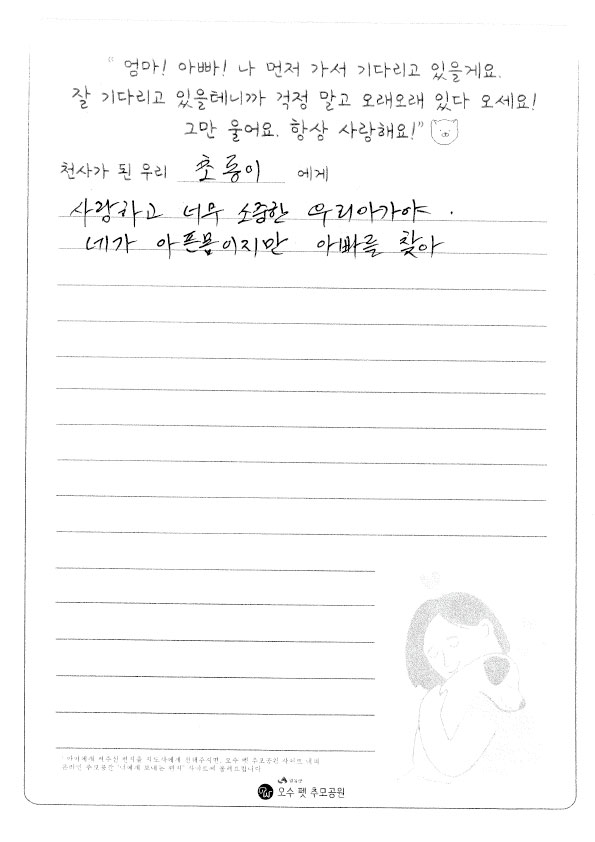 “ 엄마! 아빠! 나 먼저 가서 기다리고 있을게요.
잘 기다리고 있을테니까 걱정 말고 오래오래 있다 오세요!
그만 울어요. 항상 사랑해요!”
천사가 된 우리 초롱이 에게
사랑하고 너무 소중한 우리아가야.
네가 아픈몸이지만 아빠를 찾아
오수 펫 추모공원